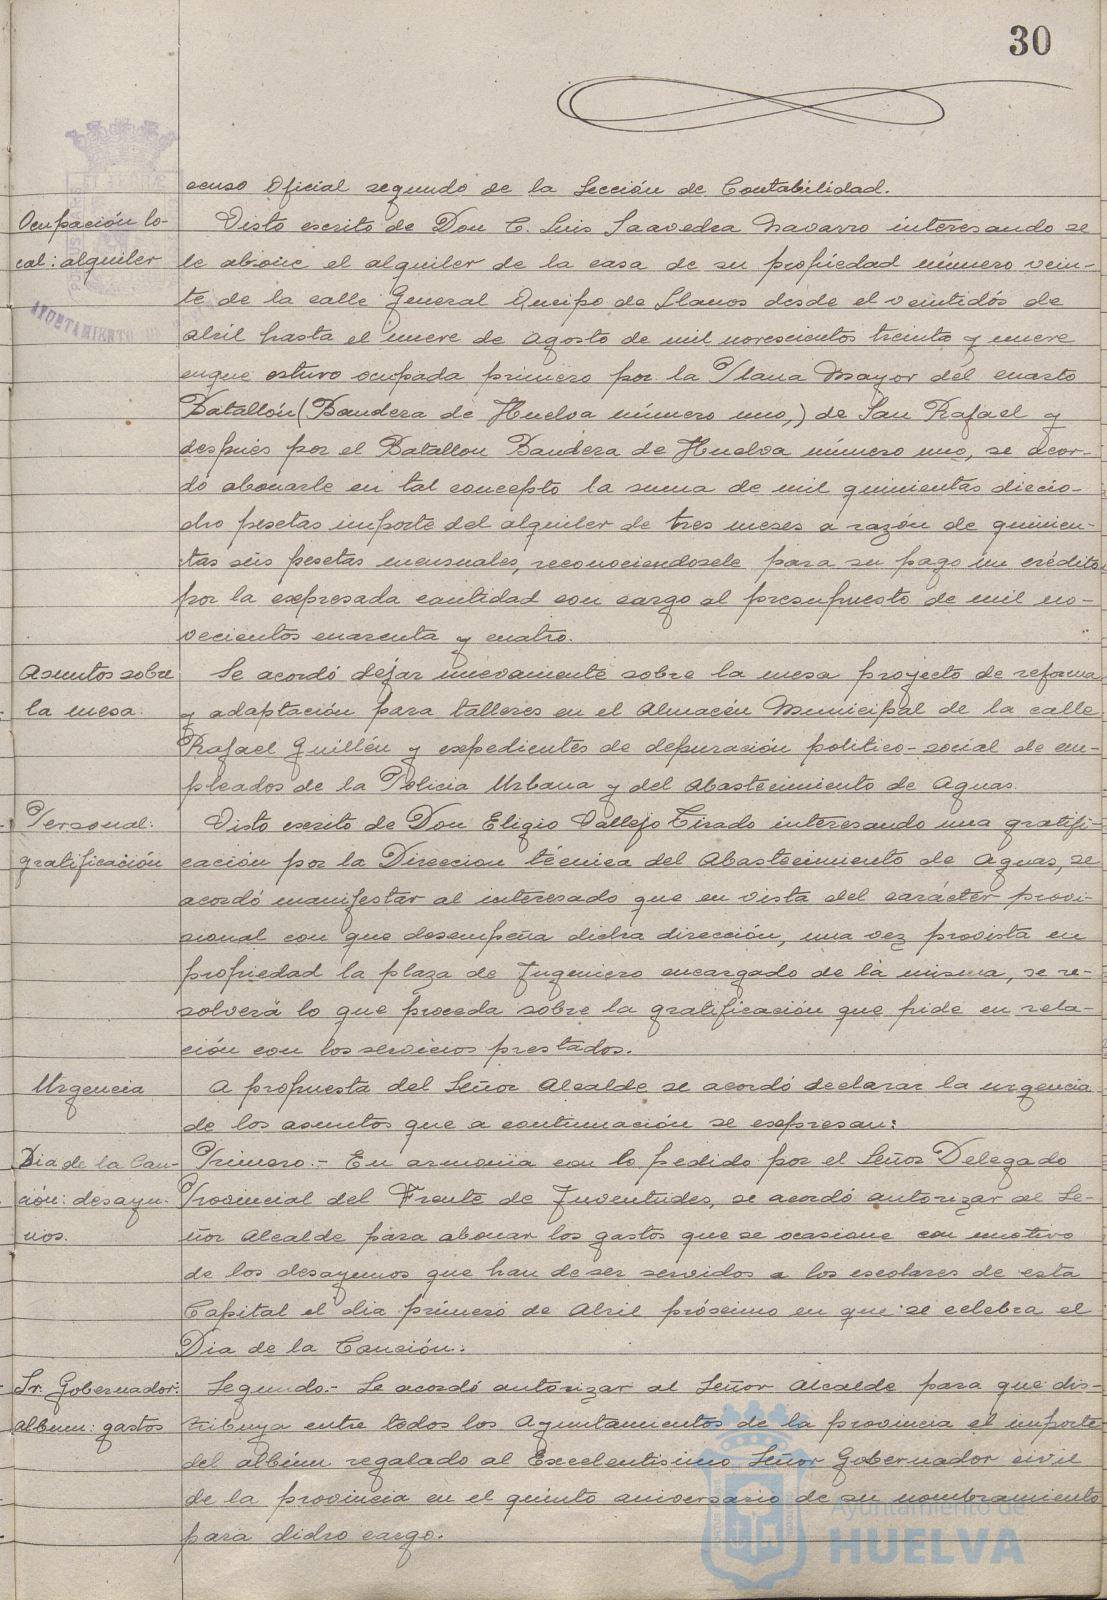 30
acuso Oficial segundo de la Sección de Contabilidad.
Ocupación lo-
cal: alquiler
Visto escrito de Don C. Luis Saavedra Navarro interesando se
le abone el alquiler de la casa de su propiedad número vein-
te de la calle General Queipo de Llanos desde el veintidós de
Abril hasta el nueve de Agosto de mil novescientos treinta y nueve
enque estuvo ocupada primero por la Plana Mayor del cuarto
Batallón (Bandera de Huelva número uno,) de San Rafael y
después por el Batallon Bandera de Huelva número uno, se acor-
dó abonarle en tal concepto la suma de mil quinientas diecio-
cho pesetas importe del alquiler de tres meses a razón de quinien-
tas seis pesetas mensuales, reconociendosele para su pago un crédito
por la expresada cantidad con cargo al presupuesto de mil no-
vecientos cuarenta y cuatro.
Asuntos sobre
la mesa.
Se acordó dejar nuevamente sobre la mesa proyecto de reforma
y adaptación para talleres en el Almacén Municipal de la calle
Rafael Guillén y expedientes de depuración politico-social de em-
pleados de la Policia Urbana y del Abastecimiento de Aguas.
Personal:
gratificación
Visto escrito de Don Eligio Vallejo Tirado interesando una gratifi-
cación por la Direccion técnica del Abastecimiento de Aguas, se
acordó manifestar al interesado que en vista del carácter provi-
sional con que desempeña dicha dirección, una vez provista en
propiedad la plaza de Ingeniero encargado de la misma, se re-
solverá lo que proceda sobre la gratificación que pide en rela-
ción con los servicios prestados.
Urgencia
A propuesta del Señor Alcalde se acordó declarar la urgencia
de los asuntos que a continuación se expresan:
Dia de la Can-
ción: desayu-
nos.
Primero.- En armonia con lo pedido por el Señor Delegado
Provincial del Frente de Juventudes, se acordó autorizar al Se-
ñor Alcalde para abonar los gastos que se ocasione con motivo
de los desayunos que han de ser servidos a los escolares de esta
Capital el dia primero de Abril próximo en que se celebra el
Dia de la Canción.
Sr. Gobernador:
album: gastos
Segundo.- Se acordó autorizar al Señor Alcalde para que dis-
tribuya entre todos los Ayuntamientos de la provincia el importe
del album regalado al Excelentisimo Señor Gobernador civil
de la provincia en el quinto aniversario de su nombramiento
para dicho cargo.
AYUNTAMIENTO
Ayuntamiento de
HUELVA